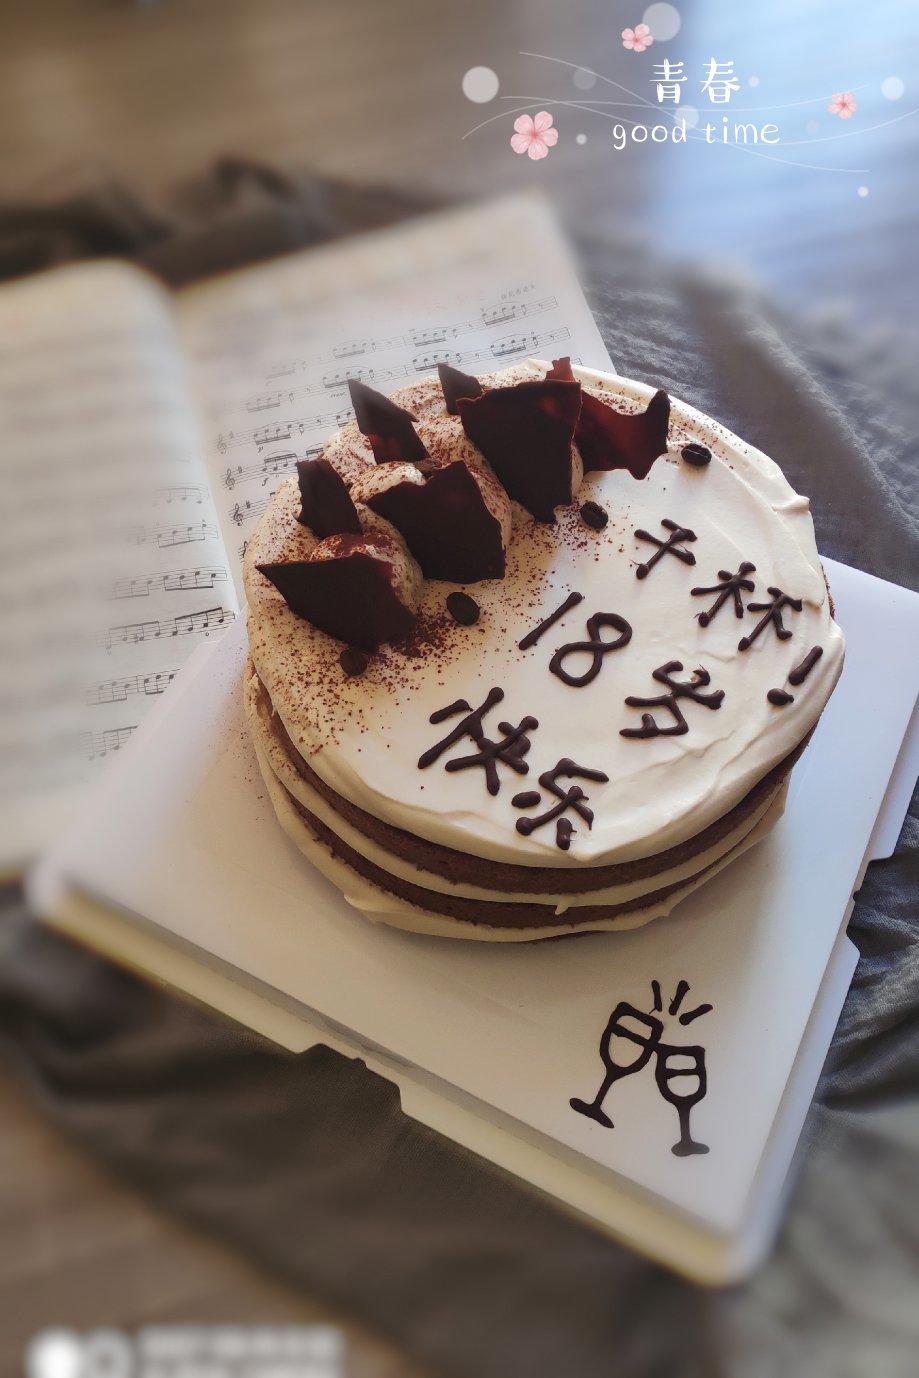 青春
good time
干杯!
18岁
快乐